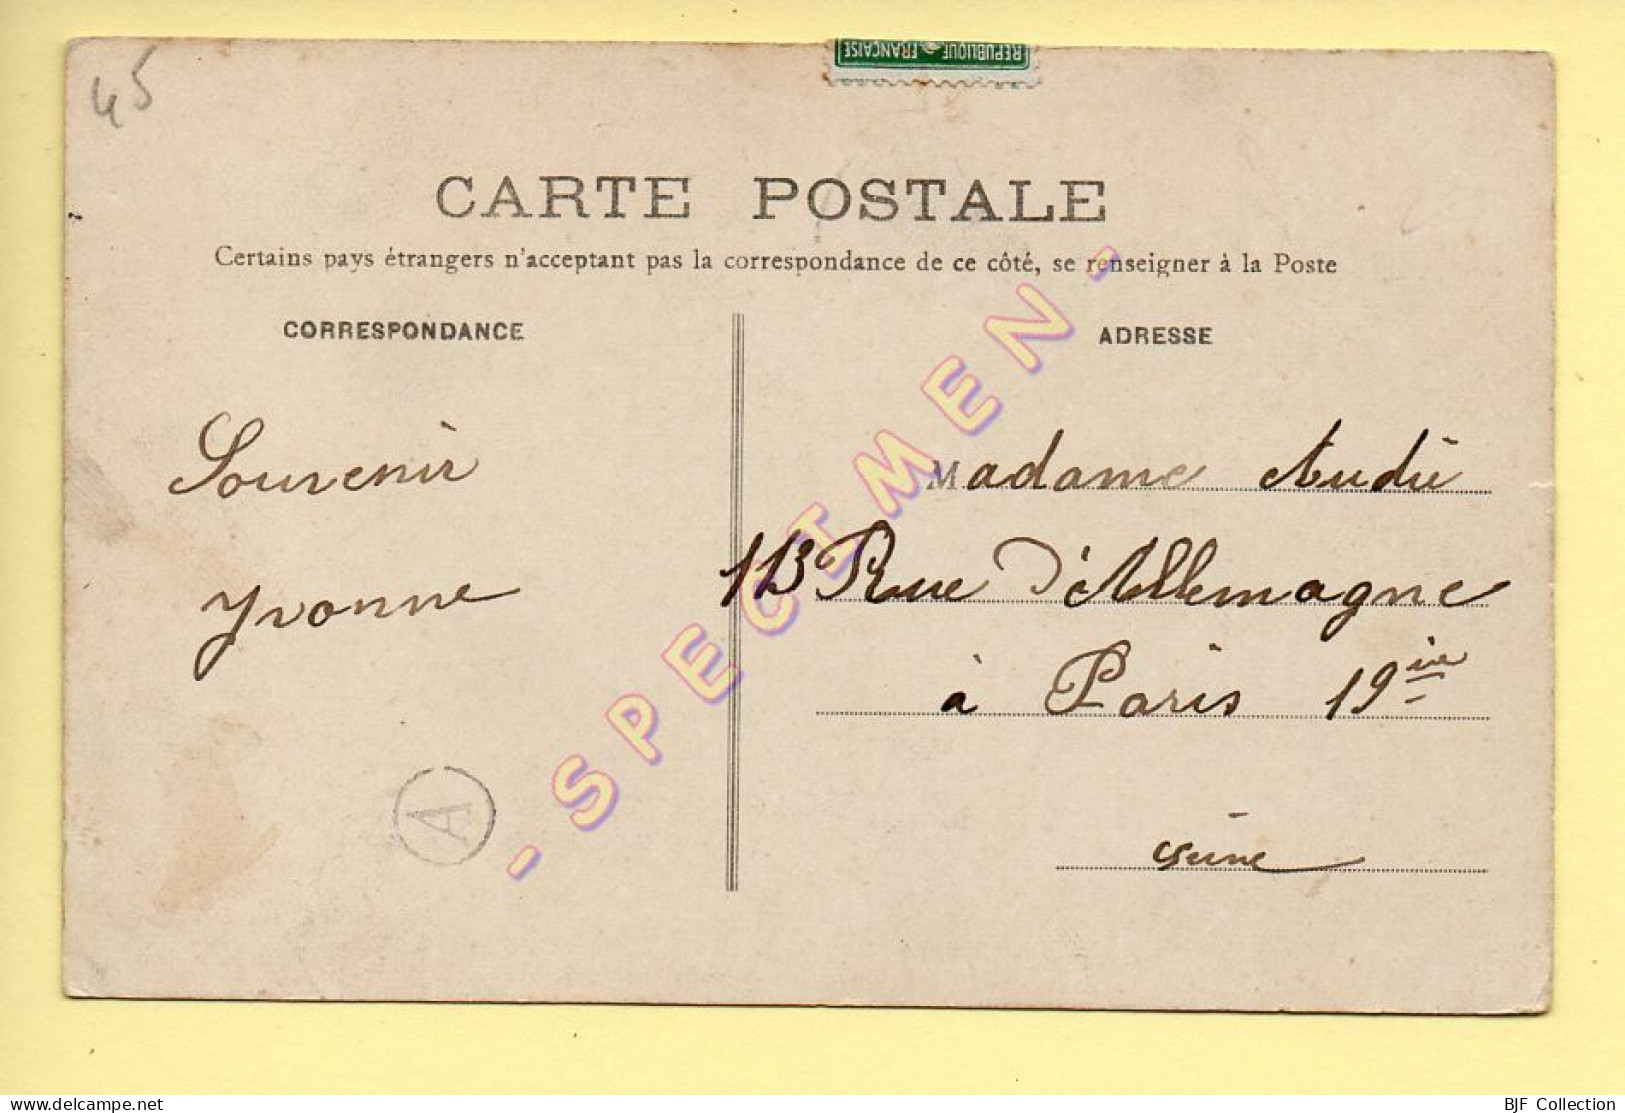 45
RÉPUBLIQUE FRANÇAISE
CARTE POSTALE
Certains pays étrangers n'acceptant pas la correspondance de ce côté, se renseigner à la Poste
CORRESPONDANCE
ADRESSE
Souvenir
Yvonne
A
Madame Audié
113 Rue d'Allemagne
à Paris 19ième
Seine
- SPECIMEN -
www.delcampe.net
BJF Collection